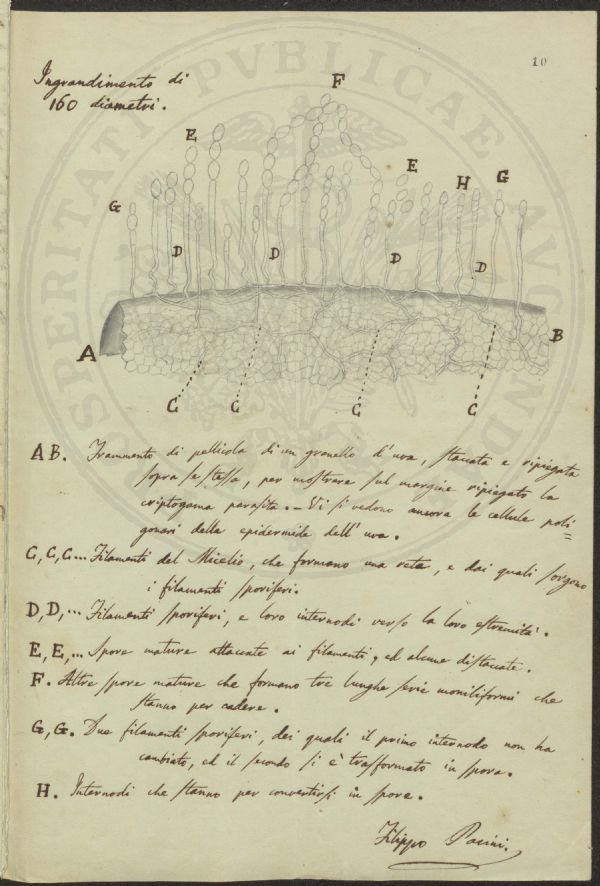 10
Ingrandimento di
160 diametri.
F
E
E
G
H
G
D
D
D
D
A
B
C
C
C
C
A B. Frammento di pellicola di un granello d'uva, staccata e ripiegata
sopra se stessa, per mostrare sul margine ripiegato la
criptogama parasita. – Vi si vedono ancora le cellule poli=
gonari della epidermide dell'uva.
C, C, C... Filamenti del Micelio, che formano una rete, e dai quali sorgono
i filamenti sporiferi.
D, D,... Filamenti sporiferi, e loro internodi verso la loro estremità.
E, E,... Spore mature attaccate ai filamenti, ed alcune distaccate.
F. Altre spore mature che formano tre lunghe serie moniliformi che
stanno per cadere.
G, G. Due filamenti sporiferi, dei quali il primo internodo non ha
cambiato, ed il secondo si è trasformato in spora.
H. Internodi che stanno per convertirsi in spore.
Filippo Pacini.